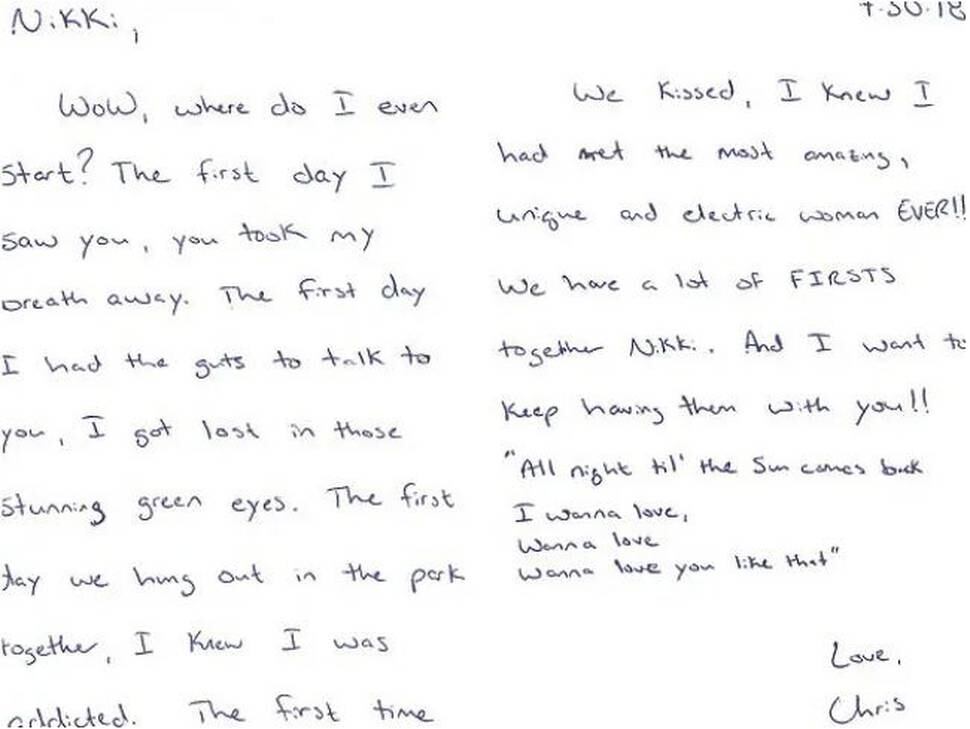 Nikki,
WoW, where do I even
Start? The first day I
Saw you, you took my
breath away. The first day
I had the guts to talk to
you, I got lost in those
Stunning green eyes. The first
day we hung out in the park
together, I knew I was
addicted. The first time
We kissed, I knew I
had met the most amazing,
unique and electric woman EVER!!
We have a lot of FIRSTS
together Nikki. And I want to
Keep having them with you!!
"All night til' the Sun comes back
I wanna love,
Wanna love
Wanna love you like that"
Love,
Chris